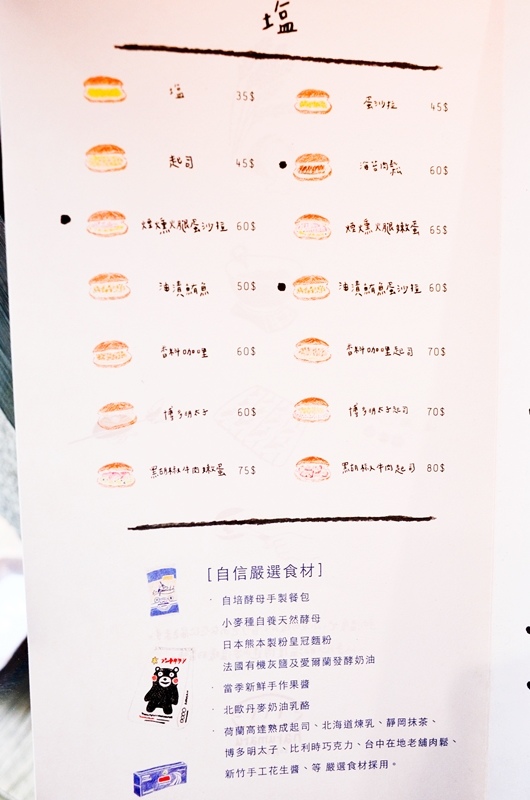 塩
塩 35$ 蛋沙拉 45$
起司 45$ 海苔肉鬆 60$
煙燻火腿蛋沙拉 60$ 煙燻火腿嫩蛋 65$
油漬鮪魚 50$ 油漬鮪魚蛋沙拉 60$
香料咖哩 60$ 香料咖哩起司 70$
博多明太子 60$ 博多明太子起司 70$
黑胡椒牛肉嫩蛋 75$ 黑胡椒牛肉起司 80$
[自信嚴選食材]
· 自培酵母手製餐包
小麥種自養天然酵母
日本熊本製粉皇冠麵粉
法國有機灰鹽及愛爾蘭發酵奶油
· 當季新鮮手作果醬
· 北歐丹麥奶油乳酪
· 荷蘭高達熟成起司、北海道煉乳、靜岡抹茶、
博多明太子、比利時巧克力、台中在地老舖肉鬆、
新竹手工花生醬、等 嚴選食材採用。